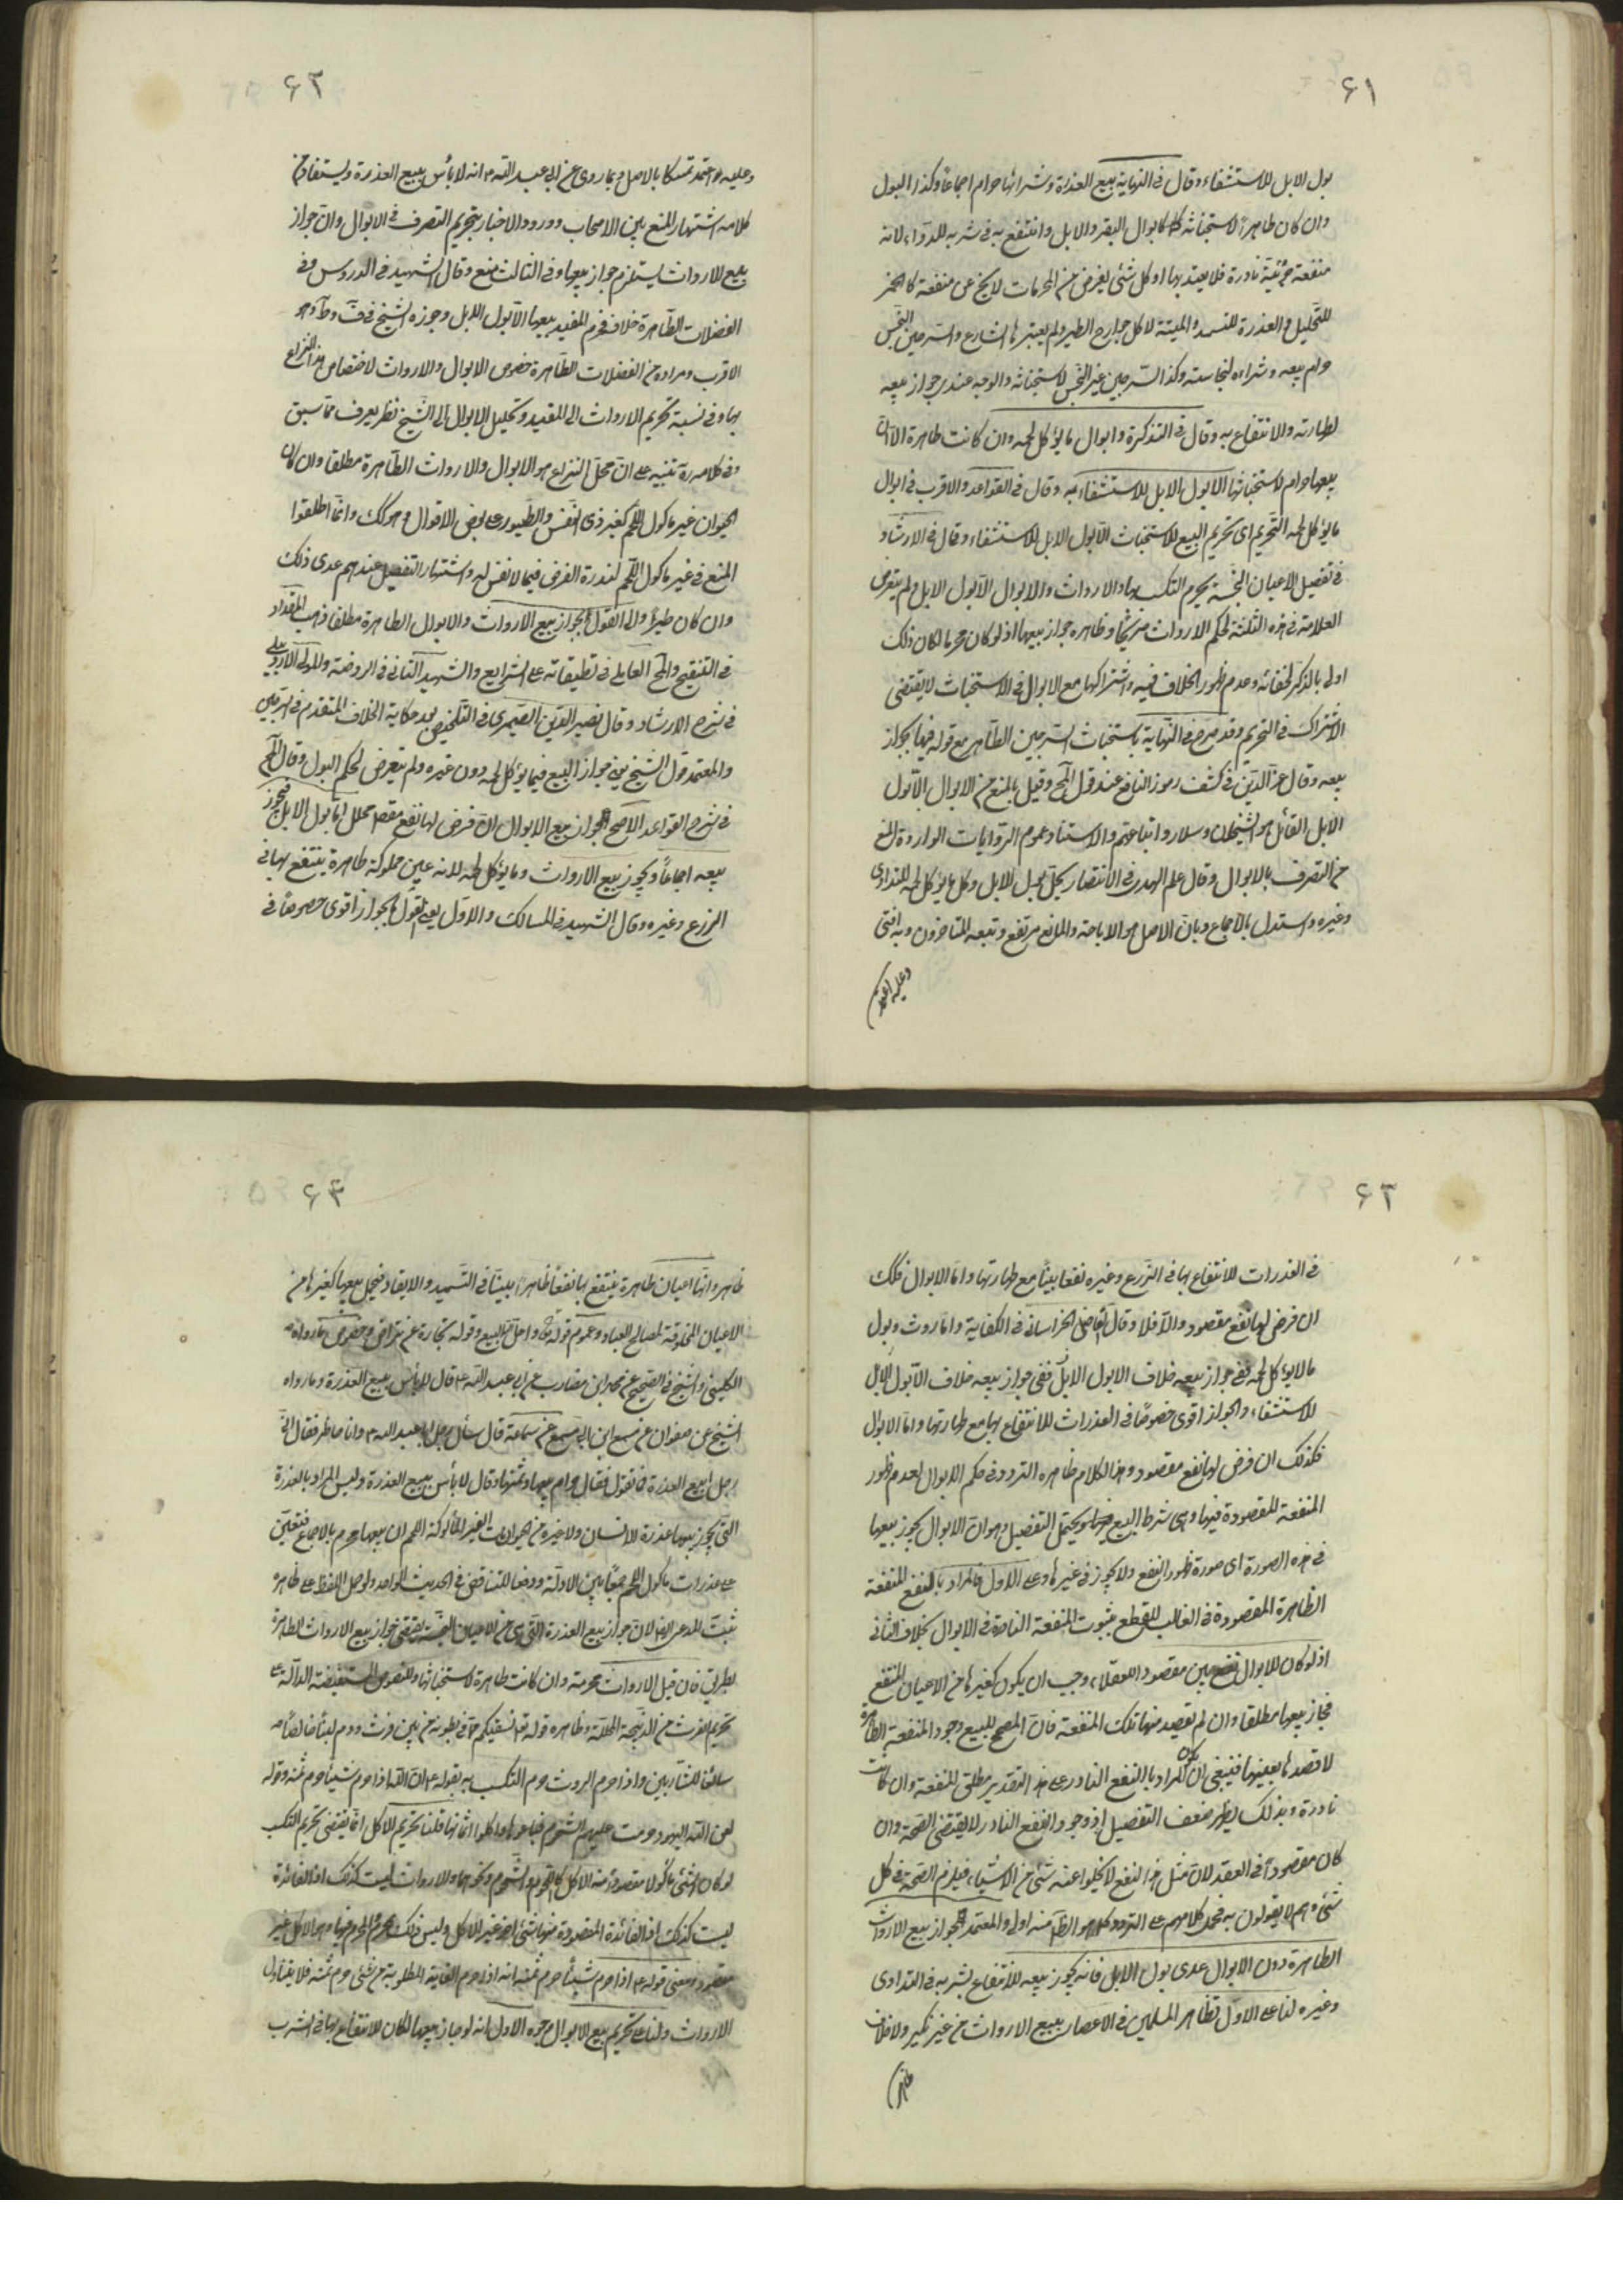 ۶۱
بول الابل للاستشفاء وقال فى النهاية بيع العذرة وشرائها حرام اجماعا وكذا البول
وان كان طاهرا لاستخباثه كابوال البقر والابل وانتفع به فى شربه للدواء لانه
منفعة جزئية نادرة فلا يعتد بها او كل شئ يفرض من المحرمات لا يخ عن منفعة كالخمر
للتخليل والعذرة للتسميد والميتة لاكل جوارح الطير ولم يعتبرها الشارع والسرجين النجس
حرام بيعه وشراءه لنجاسته وكذا السرجين غير النجس لاستخباثه والوجه عندى جواز بيعه
لطهارته والانتفاع به وقال فى التذكرة وابوال ما يؤكل لحمه وان كانت طاهرة الا ان
بيعها حرام لاستخباثها الا بول الابل للاستشفاء به وقال فى القواعد والاقرب فى ابوال
ما يؤكل لحمه التحريم اى تحريم البيع للاستخباث الا بول الابل للاستشفاء وقال فى الارشاد
فى تفصيل الاعيان النجسة يحرم التكسب بها والارواث والابوال الا بول الابل ولم يتعرض
العلامة فى هذه الثلثة لحكم الارواث صريحا وظاهره جواز بيعها اذ لو كان محرما لكان ذلك
اولى بالذكر لخفائه وعدم ظهور الخلاف فيه واشتراكها مع الابوال فى الاستخباث لا يقتضى
الاشتراك فى التحريم وقد صرح فى النهاية باستخباث السرجين الطاهر مع قوله فيها بجواز
بيعه وقال عز الدين فى كشف رموز النافع عند قول المح وقيل بالمنع من الابوال الا بول
الابل القائل هو الشيخان وسلار واتباعهم والاستناد عموم الروايات الواردة بالمنع
من التصرف بالابوال وقال علم الهدى فى الانتصار يحل بول الابل وكل ما يؤكل لحمه للتداوى
وغيره واستدل بالاجماع وبان الاصل هو الاباحة والمانع مرتفع وتبعه المتاخرون وبه افتى
وعليه اعتمد
۶۲
وعليه اعتمد تمسكا بالاصل وبما روى عن ابى عبد الله ع انه لا بأس ببيع العذرة ويستفاد من
كلامه اشتهار المنع بين الاصحاب وورود الاخبار بتحريم التصرف فى الابوال وان جواز
بيع الارواث يستلزم جواز بيعها وفى الثالث منع وقال الشهيد فى الدروس وفى
الفضلات الطاهرة خلاف فحرم المفيد بيعها الا بول الابل وجوزه الشيخ فى ف وط وهو
الاقرب ومراده من الفضلات الطاهرة خصوص الابوال والارواث لاختصاص هذا النزاع
بها وفى نسبة تحريم الارواث الى المفيد وتحليل الابوال الى الشيخ نظر يعرف مما سبق
وفى كلامه ره تنبيه على ان محل النزاع هو الابوال والارواث الطاهرة مطلقا وان كان
الحيوان غير ماكول اللحم كغير ذى النفس والطيور على بعض الاقوال وهو كك وانما اطلقوا
المنع فى غير ماكول اللحم لندرة الفرض فيما لا نفس له واشتهار التفصيل عندهم عدى ذلك
وان كان طيرا والى القول بجواز بيع الارواث والابوال الطاهرة مطلقا ذهب المقداد
فى التنقيح والمح العاملى فى تعليقاته على الشرايع والشهيد الثانى فى الروضة والمولى الاردبيلى
فى شرح الارشاد وقال نصير الدين الصيمرى فى التلخيص بعد حكاية الخلاف المتقدم فى السرجين
والمعتمد قول الشيخ يعنى جواز البيع فيما يؤكل لحمه دون غيره ولم يتعرض لحكم البول وقال المح
فى شرح القواعد الاصح الجواز بيع الابوال ان فرض لها نفع مقصود محلل اما بول الابل فيجوز
بيعه اجماعا ويجوز بيع الارواث وما يؤكل لحمه لانه عين مملوكة طاهرة ينتفع بها فى
الزرع وغيره وقال الشهيد فى المسالك والاول يعنى القول بالجواز اقوى خصوصا فى
۶۳
فى العذرات للانتفاع بها فى الزرع وغيره نفعا بينا مع طهارتها واما الابوال فكك
ان فرض لها نفع مقصود والا فلا وقال الفاضل الخراسانى فى الكفاية واما روث وبول
ما لا يؤكل لحمه ففى جواز بيعه خلاف الا بول الابل ففى جواز بيعه خلاف الا بول الابل
للاستشفاء والجواز اقوى خصوصا فى العذرات للانتفاع بها مع طهارتها واما الابوال
فكذلك ان فرض لها نفع مقصود وهذا الكلام ظاهره التردد فى حكم الابوال لعدم ظهور
المنفعة المقصودة فيها وهى شرط البيع ويحتمل التفصيل وهو ان الابوال يجوز بيعها
فى هذه الصورة اى صورة ظهور النفع ولا يجوز فى غيرها وعلى الاول فالمراد بالنفع المنفعة
الظاهرة المقصودة فى الغالب للقطع بثبوت المنفعة النادرة فى الابوال بخلاف الثانى
اذ لو كان للابوال نفع بين مقصود للعقلاء وجب ان يكون كغيرها من الاعيان المنتفع
فجاز بيعها مطلقا وان لم يقصد منها تلك المنفعة فان المصحح للبيع وجود المنفعة الظاهرة
لا قصدها بعينها فينبغى ان يكون المراد بالنفع النادر على هذا التقدير مطلق المنفعة وان كانت
نادرة وبذلك يظهر ضعف التفصيل اذ وجود النفع النادر لا يقتضى الصحة وان
كان مقصودا فى العقد لان مثل هذا النفع لا يخلو عنه شئ من الاشياء فيلزم الصحة فى كل
شئ وهم لا يقولون به فحمل كلامهم على التردد كما هو الظ منه اولى والمعتمد الجواز بيع الارواث
الطاهرة دون الابوال عدى بول الابل فانه يجوز بيعه للانتفاع بشربه فى التداوى
وغيره لنا على الاول تظاهر المسلمين فى الاعصار ببيع الارواث من غير نكير ولا خلاف
ظاهر
۶۴
ظاهر وانها اعيان طاهرة ينتفع بها نفعا ظاهرا بينا فى التسميد والايقاد فيحل بيعها كغيرها من
الاعيان المخلوقة لمصالح العباد وعموم قوله تع واحل الله البيع وقوله تجارة عن تراض وخصوص ما رواه
الكلينى والشيخ فى الصحيح عن محمد بن مضارب عن ابى عبد الله ع قال لا بأس ببيع العذرة وما رواه
الشيخ عن صفوان عن مسمع ابن ابى مسمع عن سماعة قال سأل رجل ابا عبد الله ع وانا حاضر فقال انى
رجل ابيع العذرة فما تقول فقال حرام بيعها وثمنها وقال لا بأس ببيع العذرة وليس المراد بالعذرة
التى يجوز بيعها عذرة الانسان ولا غيره من الحيوانات الغير المأكولة اللحم لان بيعها محرم بالاجماع فتعين
على عذرات ماكول اللحم جمعا بين الادلة ودفعا للتناقض فى الحديث الواحد ولو حمل اللفظ على ظاهره
ثبت المدعى ايضا لان جواز بيع العذرة التى هى من الاعيان النجسة يقتضى جواز بيع الارواث الطاهرة
بطريق فان قيل الارواث محرمة وان كانت طاهرة لاستخباثها وللنصوص المستفيضة الدالة على
تحريم الفرث من الذبيحة المحللة وظاهره قوله تع نسقيكم مما فى بطونه من بين فرث ودم لبنا خالصا
سائغا للشاربين واذا حرم الروث حرم التكسب به لقوله ع ان الله اذا حرم شيئا حرم ثمنه وقوله
لعن الله اليهود حرمت عليهم الشحوم فباعوها واكلوا اثمانها قلنا تحريم الاكل انما يقتضى تحريم التكسب
لو كان الشئ ماكولا مقصودا منه الاكل كاللحوم والشحوم ونحوهما والارواث ليست كذلك اذ الفائدة
ليست كذلك اذ الفائدة المقصودة منها شئ اخر غير الاكل وليس ذلك بمحرم والمحرم منها وهو الاكل غير
مقصود ومعنى قوله ع اذا حرم شيئا حرم ثمنه انه اذا حرم الغاية المطلوبة من شئ حرم ثمنه فلا يتناول
الارواث ولنا على تحريم بيع الابوال وجوه الاول انه لو جاز بيعها لكان للانتفاع بها فى الشرب